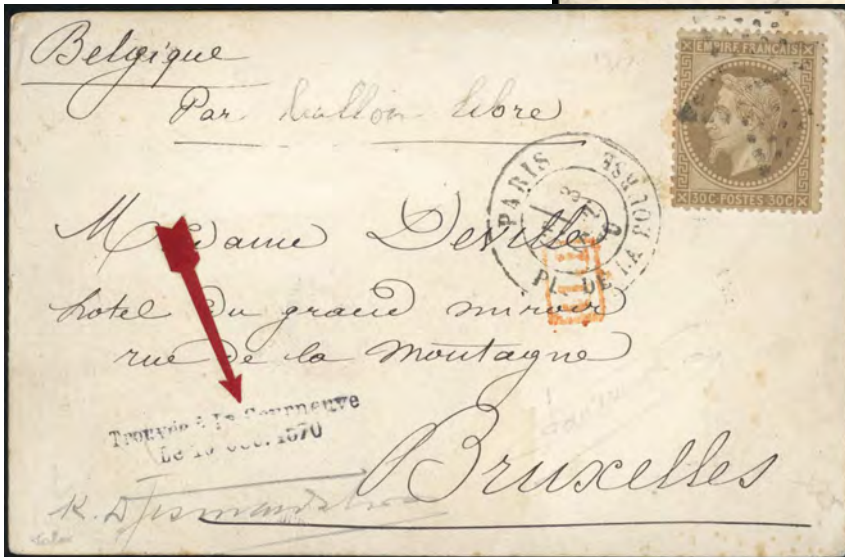 Belgique
Par ballon libre
EMPIRE FRANÇAIS
30C POSTES 30C
PARIS
PL. DE LA BOURSE
Madame Deville
hotel du grand miroir
rue de la Montagne
Trouvée à la Courneuve
Le 1870
Bruxelles